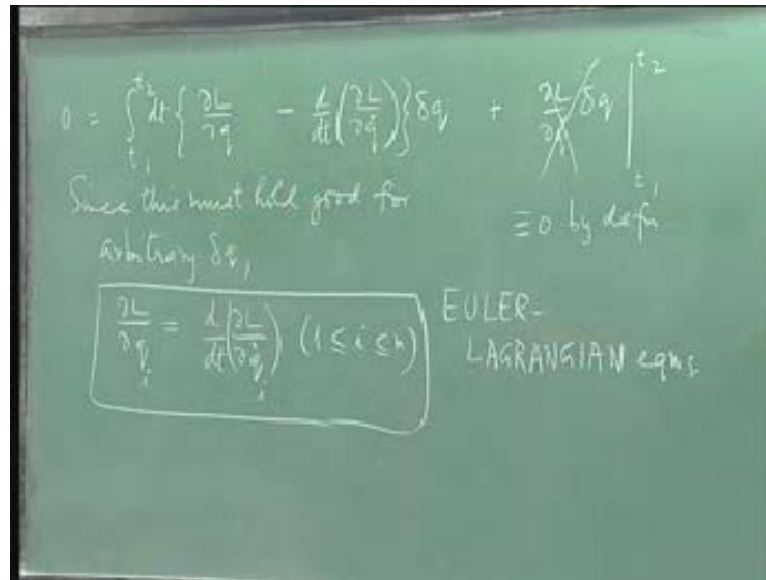 0 = ∫_{t_1}^{t_2} dt { ∂L/∂q − d/dt (∂L/∂q̇) } δq + ∂L/∂q̇ δq |_{t_1}^{t_2}
Since this must hold good for
≡ 0 by defn
arbitrary δq,
∂L/∂q_i = d/dt (∂L/∂q̇_i) (1 ≤ i ≤ n)
EULER-
LAGRANGIAN eqns